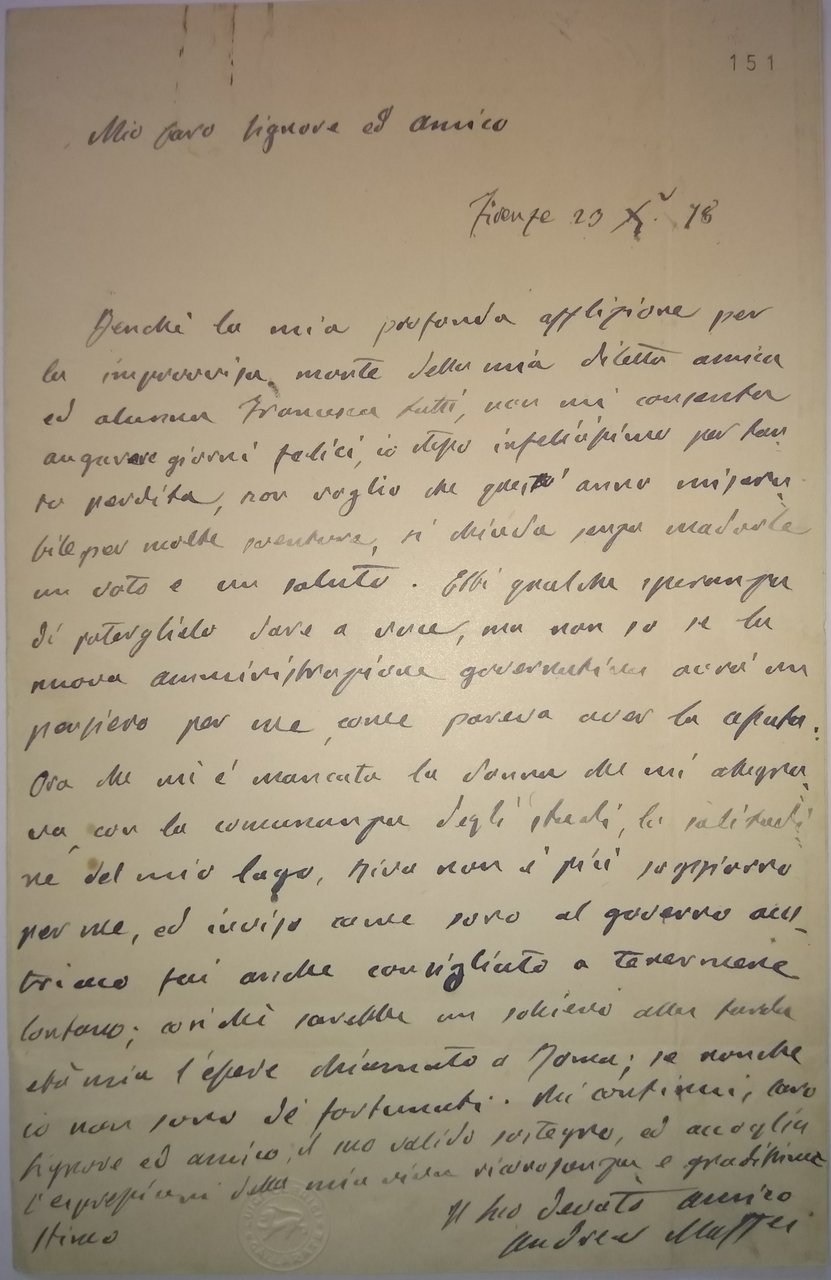 151
Mio caro Signore ed amico
Firenze 23 Xi. 78
Benchè la mia profonda afflizione per
la improvvisa morte della mia diletta amica
ed alunna Francesca Lutti, non mi consenta
augurare giorni felici, io stesso infelicissimo per tan
ta perdita, non voglio che quest' anno misera-
bile per molte sventure, si chiuda senza mandarle
un voto e un saluto. Ebbi qualche speranza
di poterglielo dare a voce, ma non so se la
nuova amministrazione governativa avrà un
pensiero per me, come pareva aver la
Ora che mi è mancata la donna che mi allegra-
va con la comunanza degli studi, la solitudi-
ne del mio lago, Riva non è più soggiorno
per me, ed inviso come sono al governo aus-
triaco fui anche consigliato a tenermene
lontano; così chè sarebbe un sollievo alla tarda
età mia l'essere chiamato a Roma; se nonchè
io non sono de' fortunati. Mi continui, caro
Signore ed amico, il suo valido sostegno, ed accoglia
l'espressioni della mia viva riconoscenza e gradissima
stima
Il suo devoto amico
Andrea Maffei